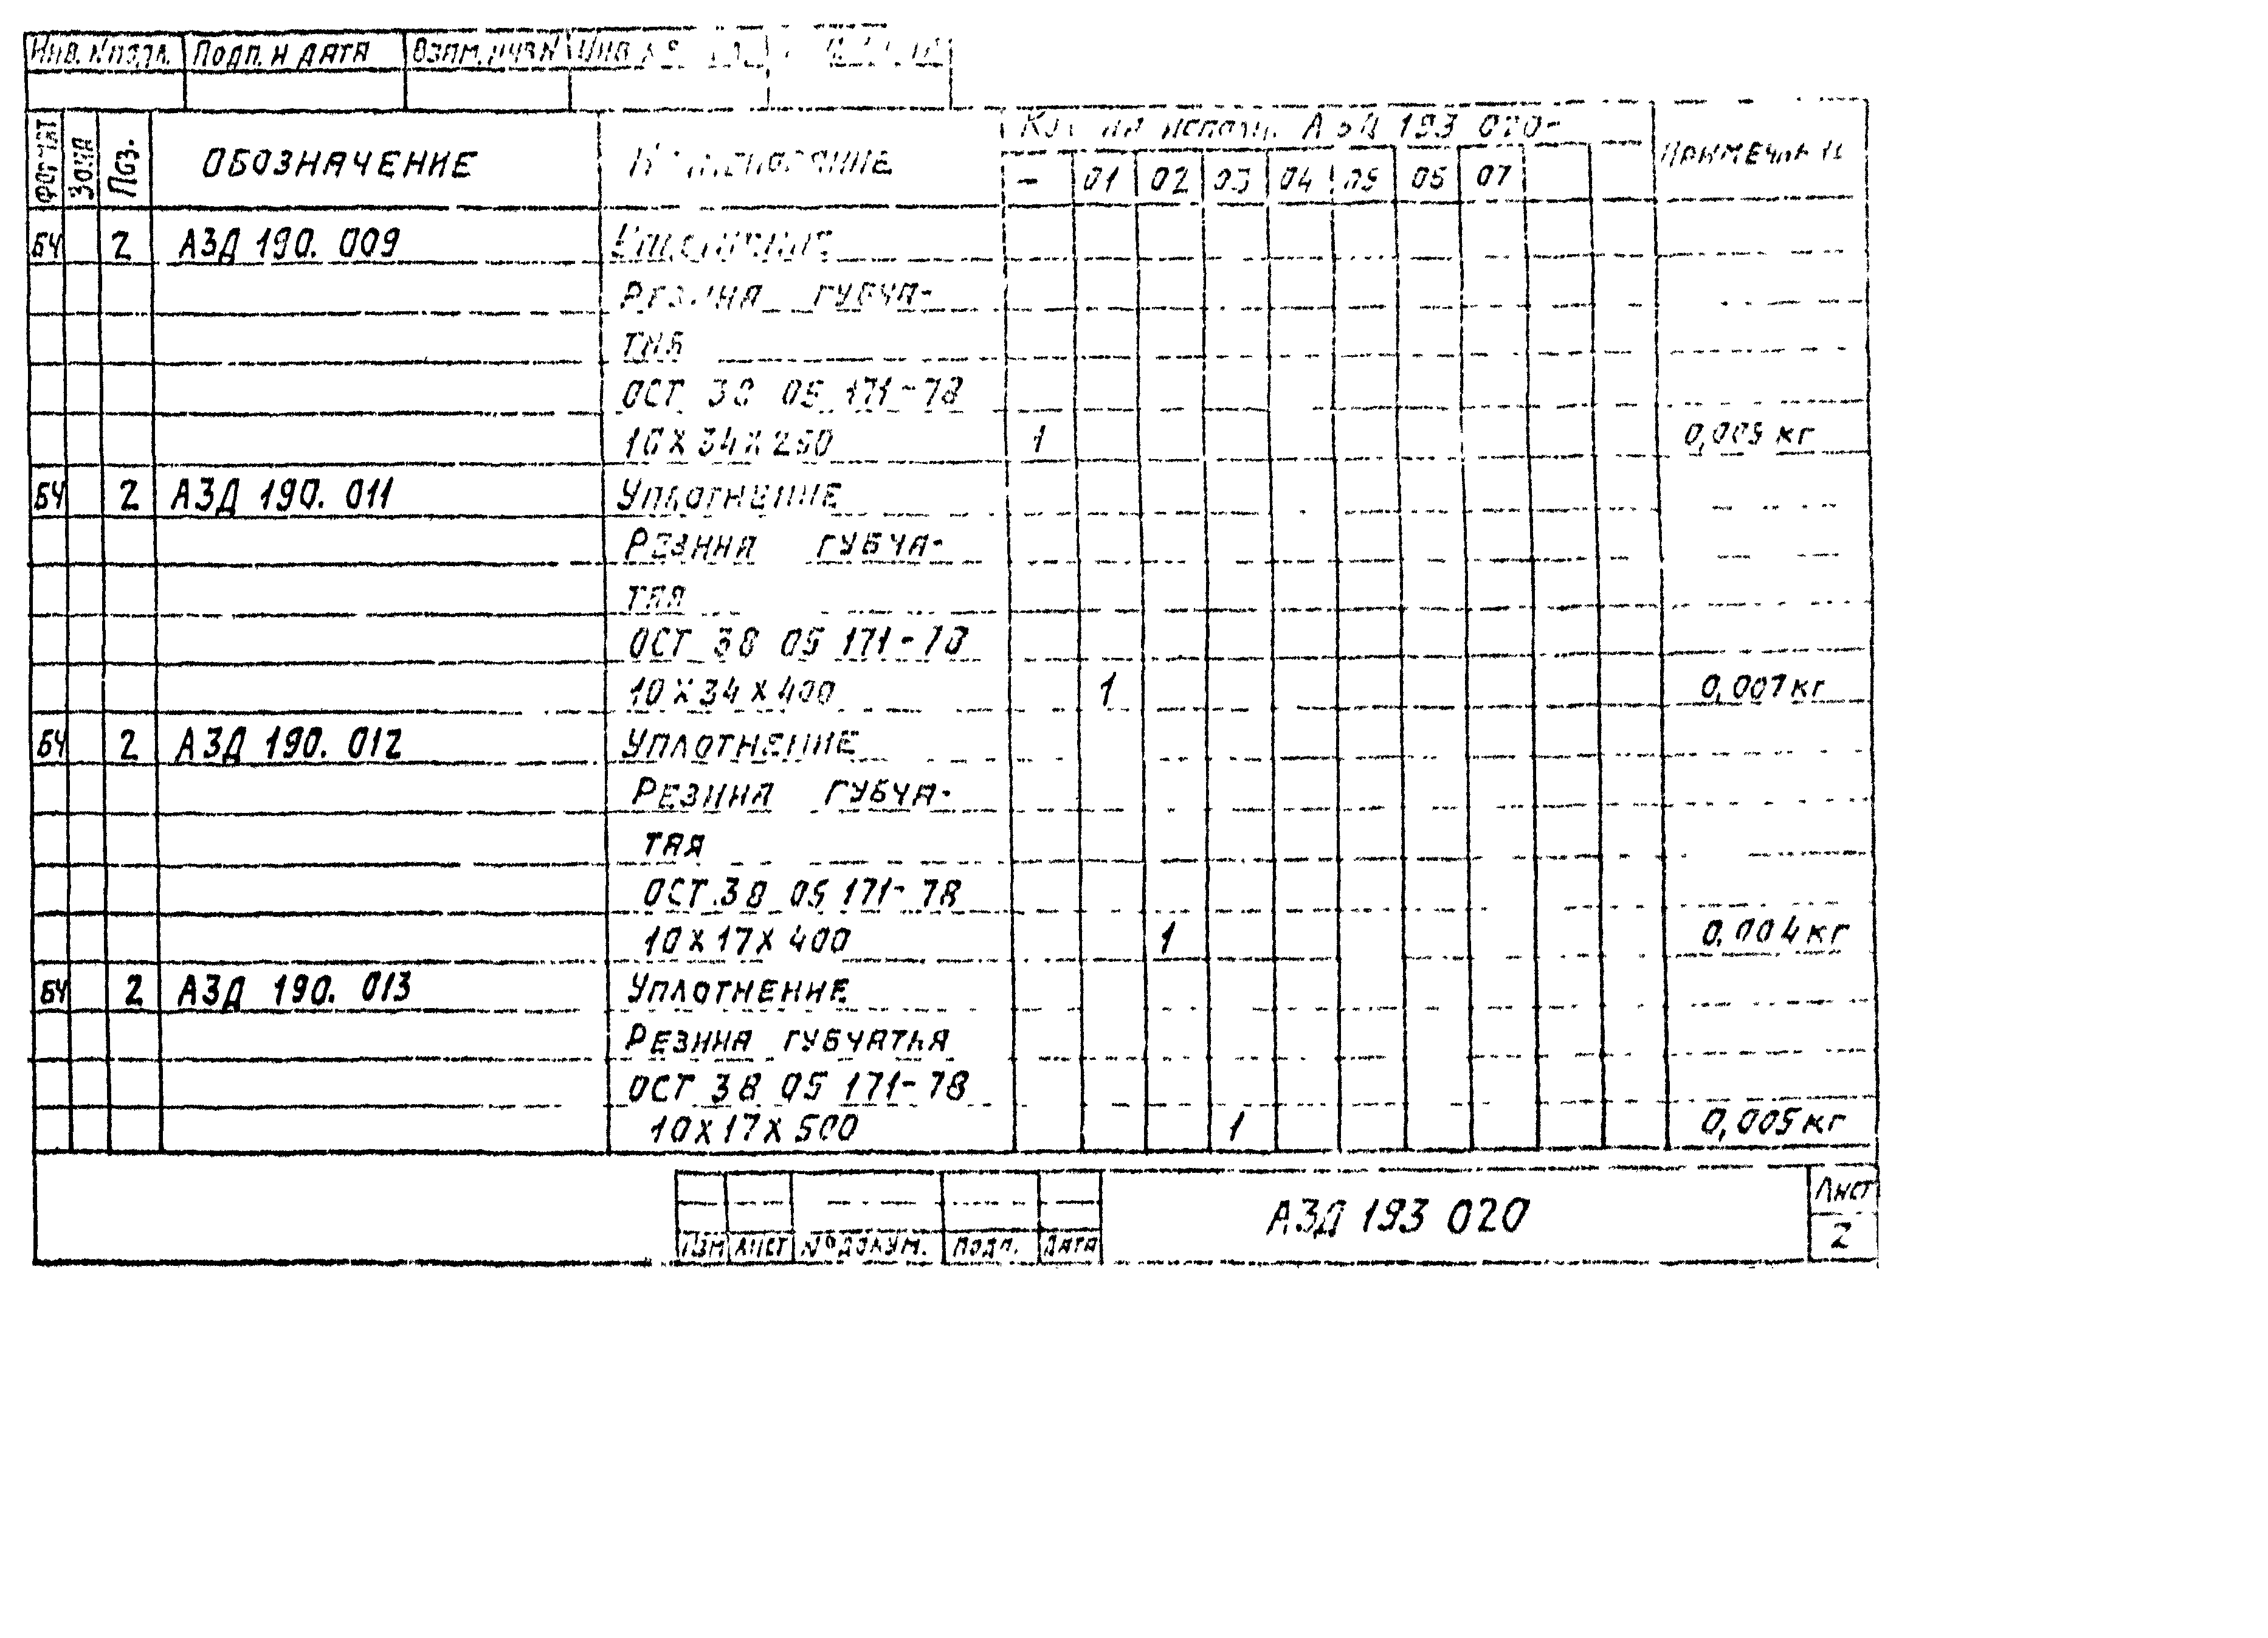 Инв. № подл. Подп. и дата Взам. инв. №
Формат Зона Поз. ОБОЗНАЧЕНИЕ Наименование Кол. на исполн. АЗД 193 020- Примечание
- 01 02 03 04 05 06 07
БЧ 2 АЗД 190. 009 Уплотнение
Резина губча-
тая
ОСТ 38 05 171-78
10×34×250 1 0,005 кг
БЧ 2 АЗД 190. 011 Уплотнение
Резина губча-
тая
ОСТ 38 05 171-78
10×34×400 1 0,007 кг
БЧ 2 АЗД 190. 012 Уплотнение
Резина губча-
тая
ОСТ 38 05 171-78
10×17×400 1 0,004 кг
БЧ 2 АЗД 190. 013 Уплотнение
Резина губчатая
ОСТ 38 05 171-78
10×17×500 1 0,005 кг
АЗД 193 020 Лист
Изм Лист № докум. Подп. Дата 2